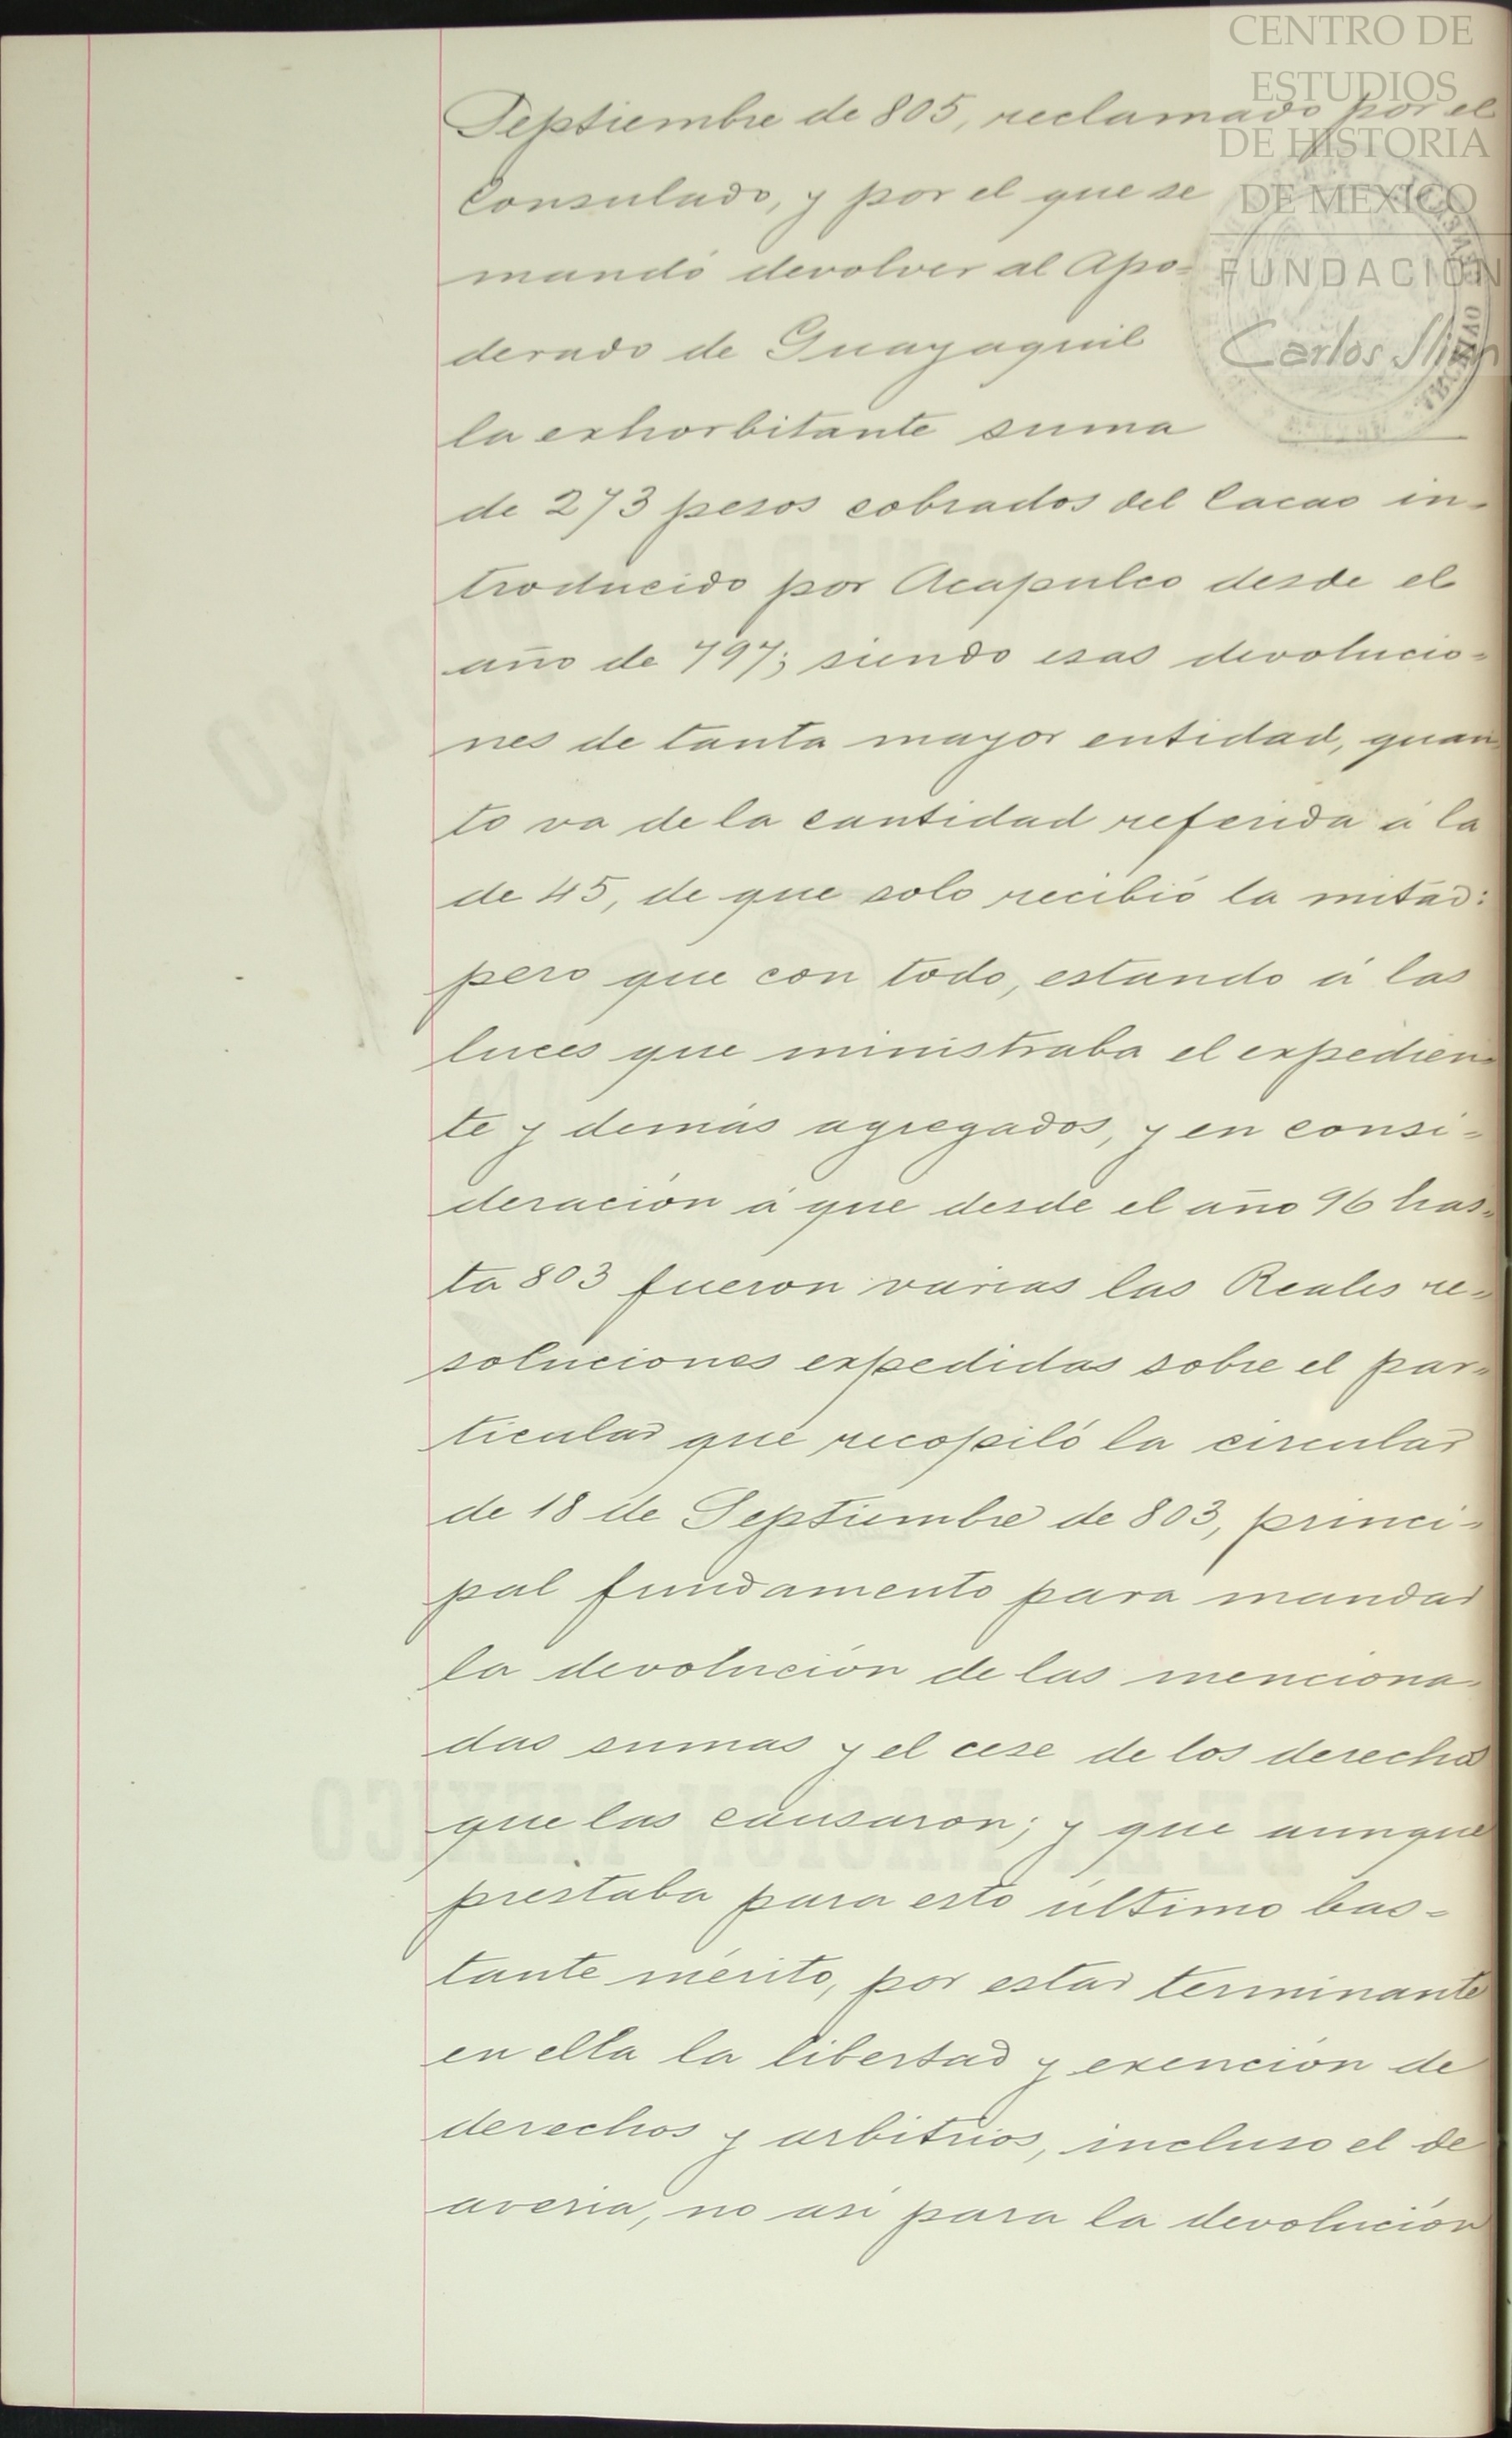 CENTRO DE
ESTUDIOS
DE HISTORIA
DE MEXICO
FUNDACIÓN
Carlos Slim
Septiembre de 805, reclamado por el
Consulado, y por el que se
mandó devolver al Apo=
derado de Guayaquil
la exhorbitante suma
de 273 pesos cobrados del Cacao in-
troducido por Acapulco desde el
año de 797; siendo esas devolucio=
nes de tanta mayor entidad, quan
to va de la cantidad referida á la
de 45, de que solo recibió la mitad:
pero que con todo, estando á las
luces que ministraba el expedien=
te y demás agregados, y en consi=
deración á que desde el año 96 has=
ta 803 fueron varias las Reales re=
soluciones expedidas sobre el par=
ticular que recopiló la circular
de 18 de Septiembre de 803, princi=
pal fundamento para mandar
la devolución de las menciona=
das sumas y el cese de los derechos
que las causaron; y que aunque
prestaba para esto último bas=
tante mérito, por estar terminante
en ella la libertad y exención de
derechos y arbitrios, incluso el de
avería, no asi para la devolución
DE LA NACION MEXICO